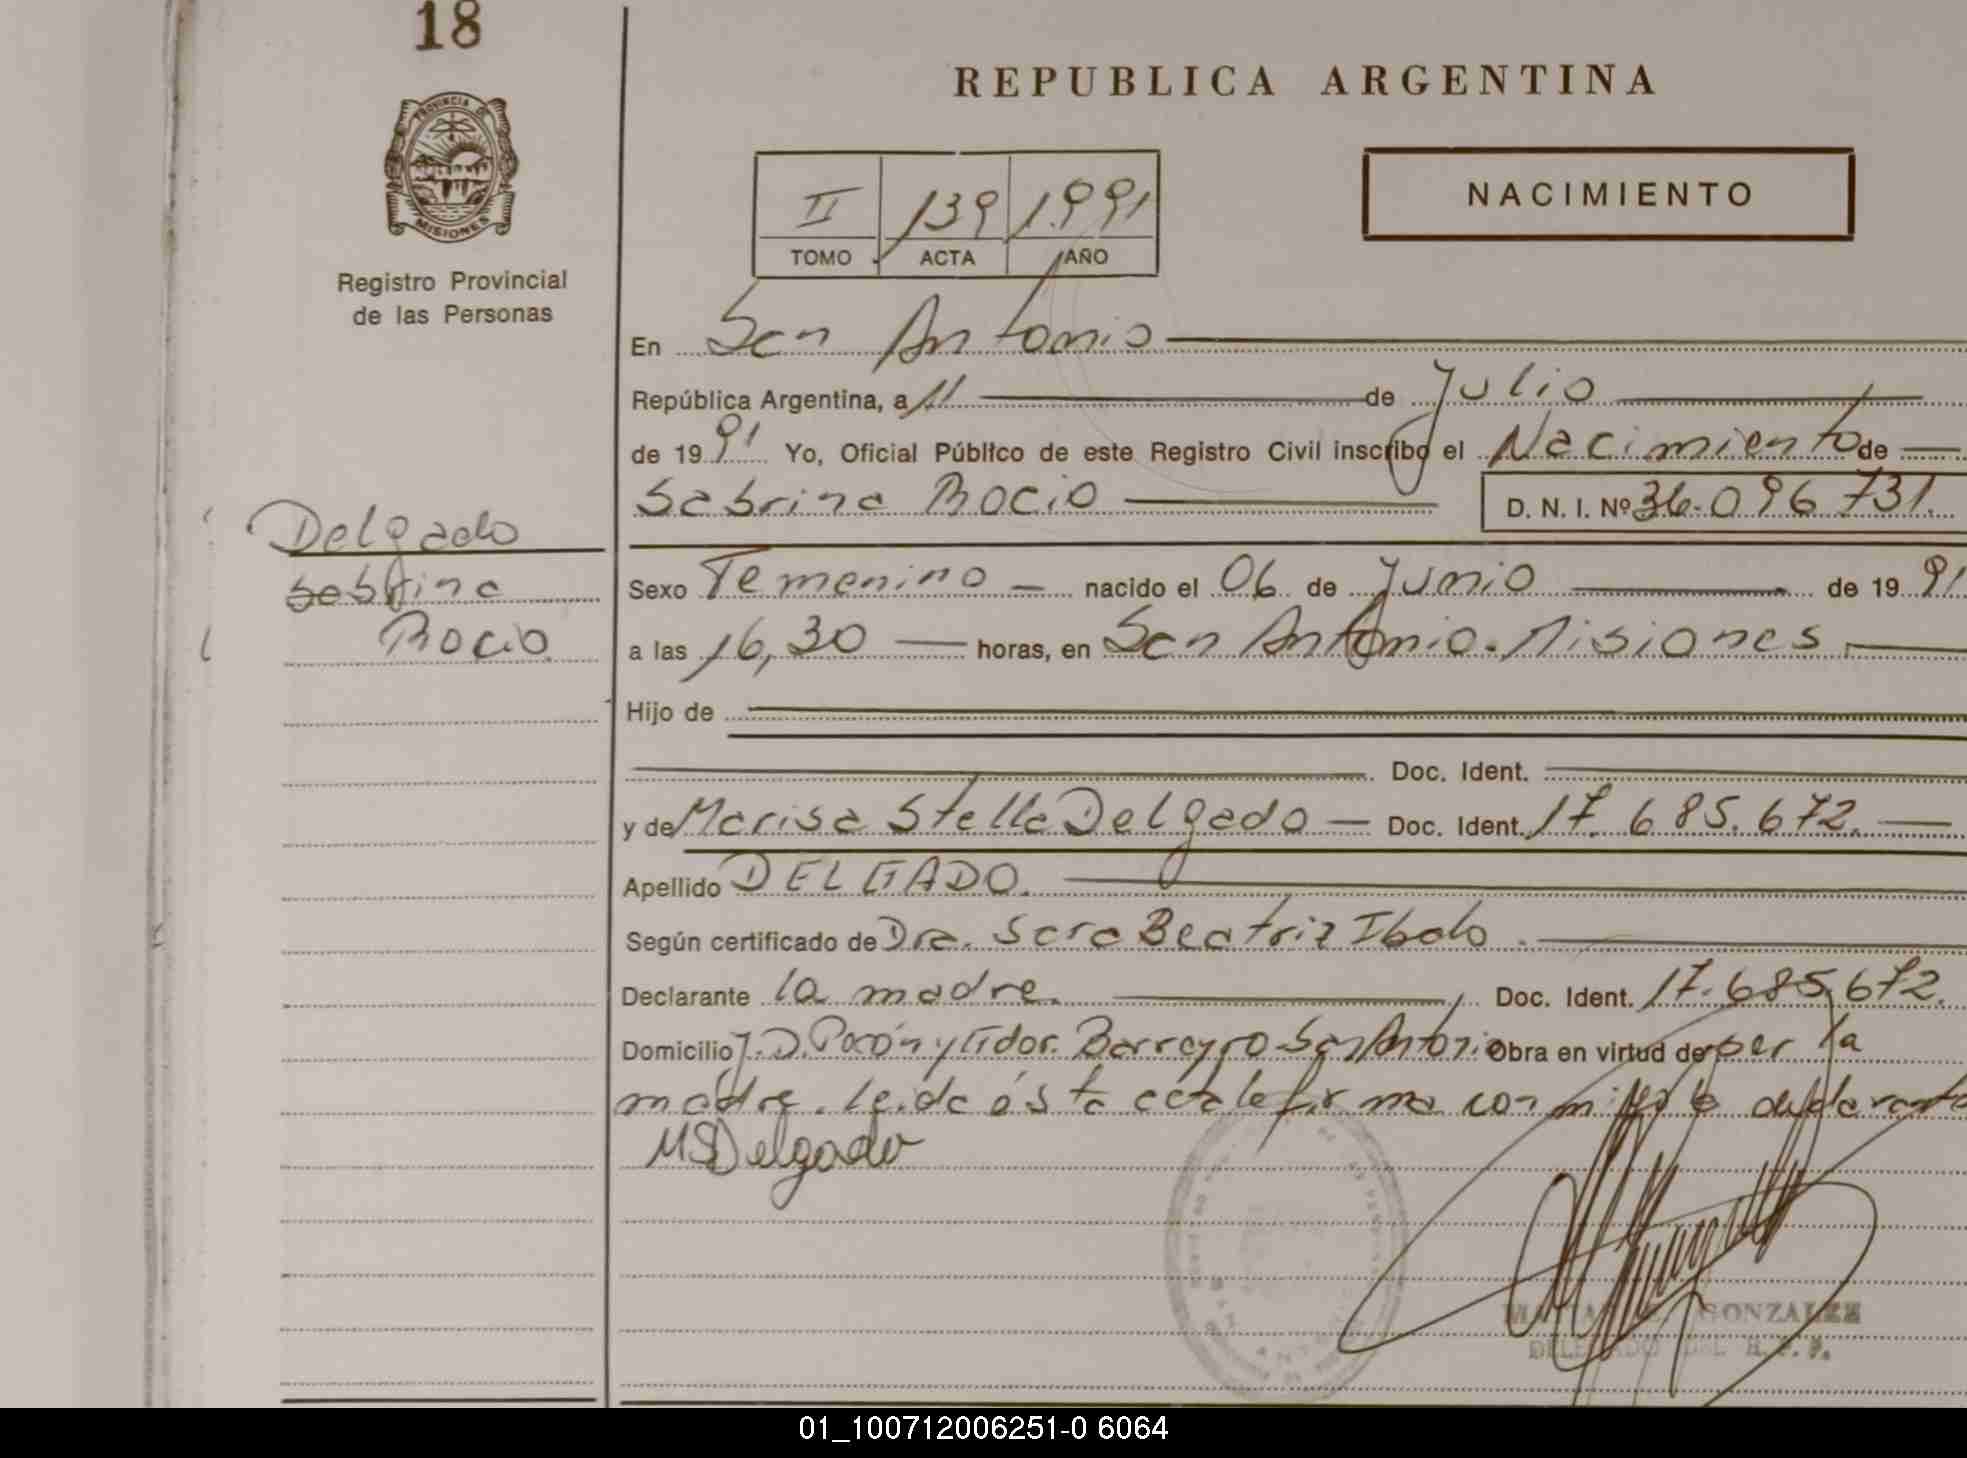 18
PROVINCIA DE
MISIONES
Registro Provincial
de las Personas
REPUBLICA ARGENTINA
NACIMIENTO
II 139 1.991
TOMO ACTA AÑO
En San Antonio
República Argentina, a 11 de Julio
de 19 91 Yo, Oficial Público de este Registro Civil inscribo el Nacimiento de
Sabrina Rocio D. N. I. Nº 36.096.731.
Delgado
Sabrina
Rocio
Sexo Femenino nacido el 06 de Junio de 19 91
a las 16,30 horas, en San Antonio. Misiones
Hijo de
Doc. Ident.
y de Marisa Stella Delgado Doc. Ident. 17.685.672.
Apellido DELGADO.
Según certificado de Dra. Sara Beatriz Ibalo
Declarante la madre. Doc. Ident. 17.685.672.
Domicilio J.D. y Gdor. Barreyro San Antonio Obra en virtud de per la
madre. leida ésta acta la firma con migo la declarante
MSDelgado
GONZALEZ
DELEGADO DEL R. P. P.
01_100712006251-0 6064